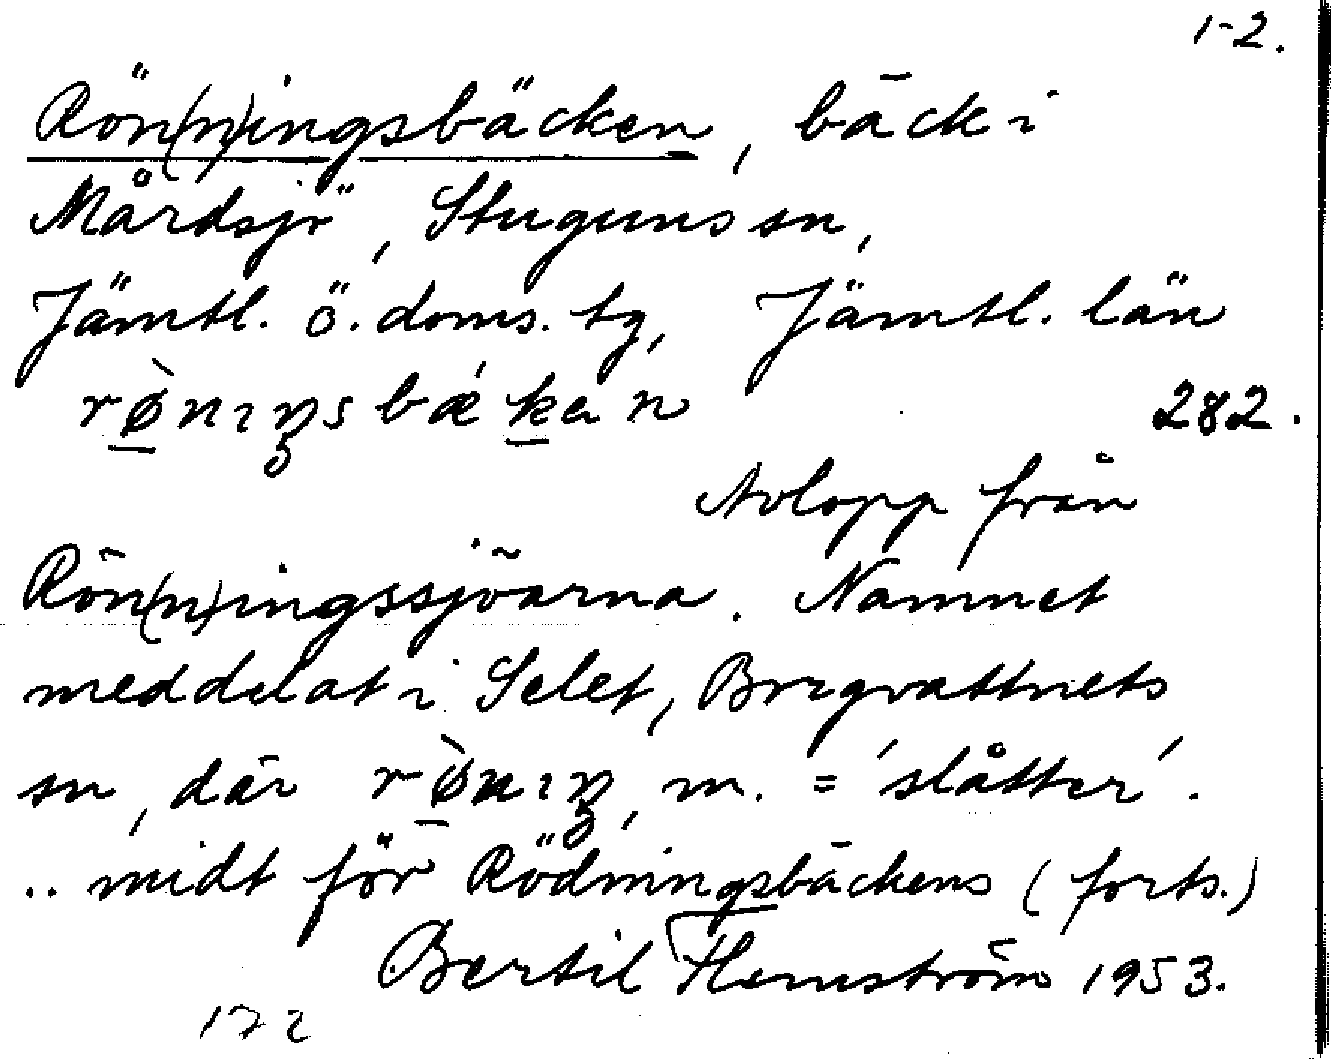 1-2.
Rön(n)ingsbäcken, bäck i
Mårdsjö, Stuguns sn,
Jämtl. ö. doms. tg, Jämtl. län
282.
Avlopp från
Rön(n)ingssjöarna. Namnet
meddelat i Selet, Borgvattnets
sn, där rø̀niŋ, m. = 'slåtter'.
.. midt för Rödningsbäckens (forts.)
Bertil Flemström 1953.
172